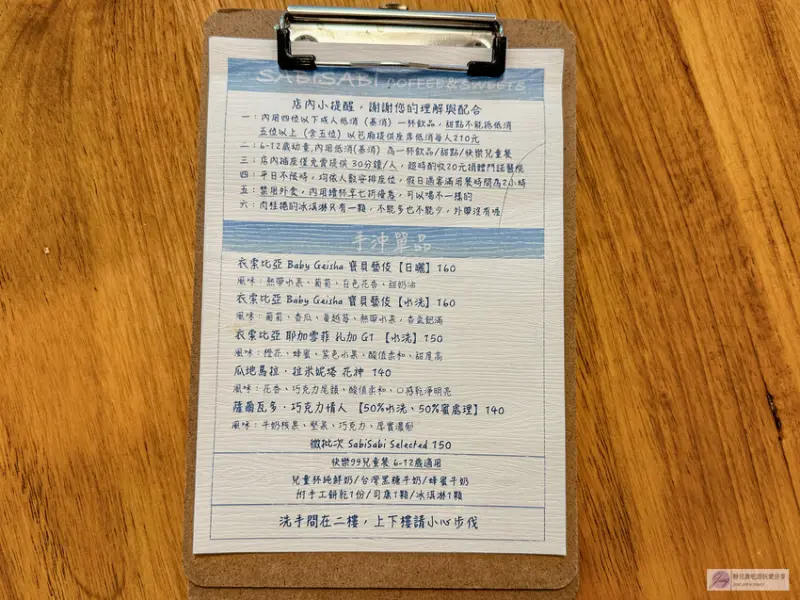 SABISABI COFFEE & SWEETS
店內小提醒，謝謝您的理解與配合
一：內用四位以下成人低消（基消）一杯飲品，甜點不能抵低消
五位以上（含五位）以包廂提供座席低消每人210元
二：6-12歲幼童,內用低消(基消) 為一杯飲品/甜點/快樂兒童餐
三：店內插座僅免費提供 30分鐘/人，超時酌收20元捐贈門諾醫院
四：平日不限時，均依人數安排座位，假日適客滿用餐時間為2小時
五：禁用外食，內用續杯享七折優惠，可以喝不一樣的
六：肉桂捲的冰淇淋只有一顆，不能多也不能少，外帶沒有喔
手沖單品
衣索比亞 Baby Geisha 寶貝藝伎【日曬】160
風味：熱帶水果、葡萄、白色花香、甜奶油
衣索比亞 Baby Geisha 寶貝藝伎【水洗】160
風味：葡萄、香瓜、蔓越莓、熱帶水果，香氣飽滿
衣索比亞 耶加雪菲 孔加 G1 【水洗】150
風味：橙花、蜂蜜、紫色水果、酸值柔和、甜度高
瓜地馬拉．拉米妮塔 花神 140
風味：花香、巧克力尾韻、酸值柔和、口感乾淨明亮
薩爾瓦多．巧克力情人 【50%水洗、50%蜜處理】140
風味：牛奶核果、堅果、巧克力、厚實濃郁
微批次 SabiSabi Selected 150
快樂99兒童餐 6-12歲適用
兒童杯純鮮奶/台灣黑糖牛奶/蜂蜜牛奶
附手工餅乾1份/司康1顆/冰淇淋1顆
洗手間在二樓，上下樓請小心步伐